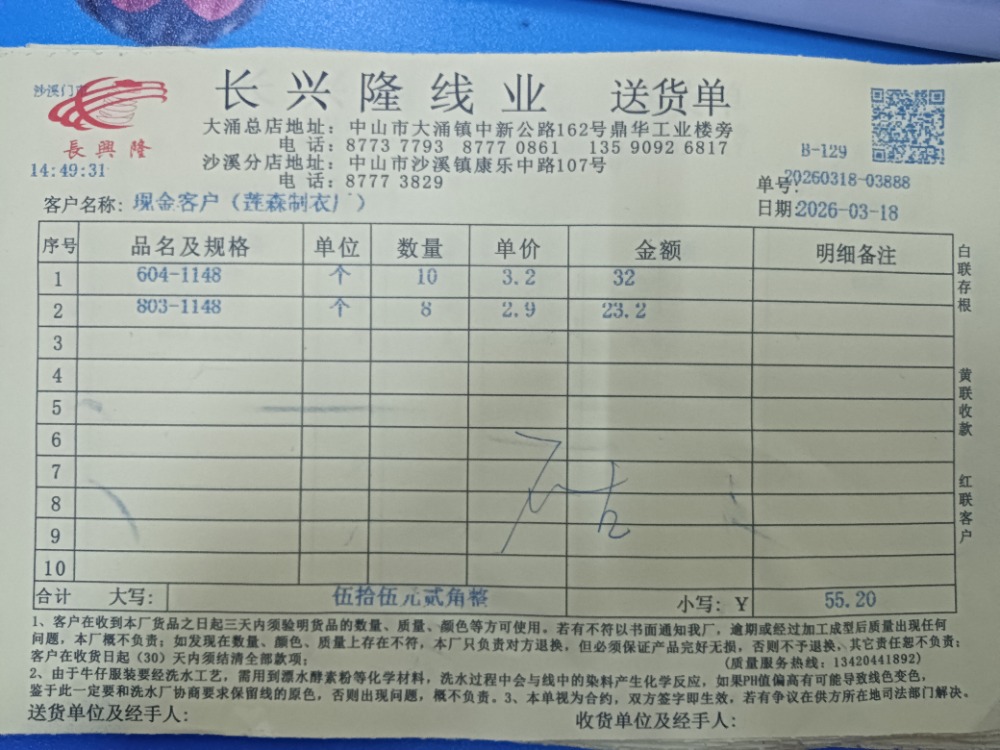 沙溪门
長興隆
14:49:31
长兴隆线业 送货单
大涌总店地址：中山市大涌镇中新公路162号鼎华工业楼旁
电话：8773 7793 8777 0861 135 9092 6817
沙溪分店地址：中山市沙溪镇康乐中路107号
电话：8777 3829
B-129
单号：20260318-03888
客户名称：现金客户（莲森制衣厂）
日期：2026-03-18
序号 品名及规格 单位 数量 单价 金额 明细备注
1 604-1148 个 10 3.2 32
2 803-1148 个 8 2.9 23.2
3
4
5
6
7
8
9
10
合计 大写： 伍拾伍元贰角整 小写：￥ 55.20
白联存根
黄联收款
红联客户
1、客户在收到本厂货品之日起三天内须验明货品的数量、质量、颜色等方可使用。若有不符以书面通知我厂，逾期或经过加工成型后质量出现任何
问题，本厂概不负责；如发现在数量、颜色、质量上存在不符，本厂只负责对方退换，但必须保证产品完好无损，否则不予退换、其它责任恕不负责；
客户在收货日起（30）天内须结清全部款项； （质量服务热线：13420441892）
2、由于牛仔服装要经洗水工艺，需用到漂水酵素粉等化学材料，洗水过程中会与线中的染料产生化学反应，如果PH值偏高有可能导致线色变色，
鉴于此一定要和洗水厂协商要求保留线的原色，否则出现问题，概不负责。3、本单视为合约，双方签字即生效，若有争议在供方所在地司法部门解决。
送货单位及经手人： 收货单位及经手人：